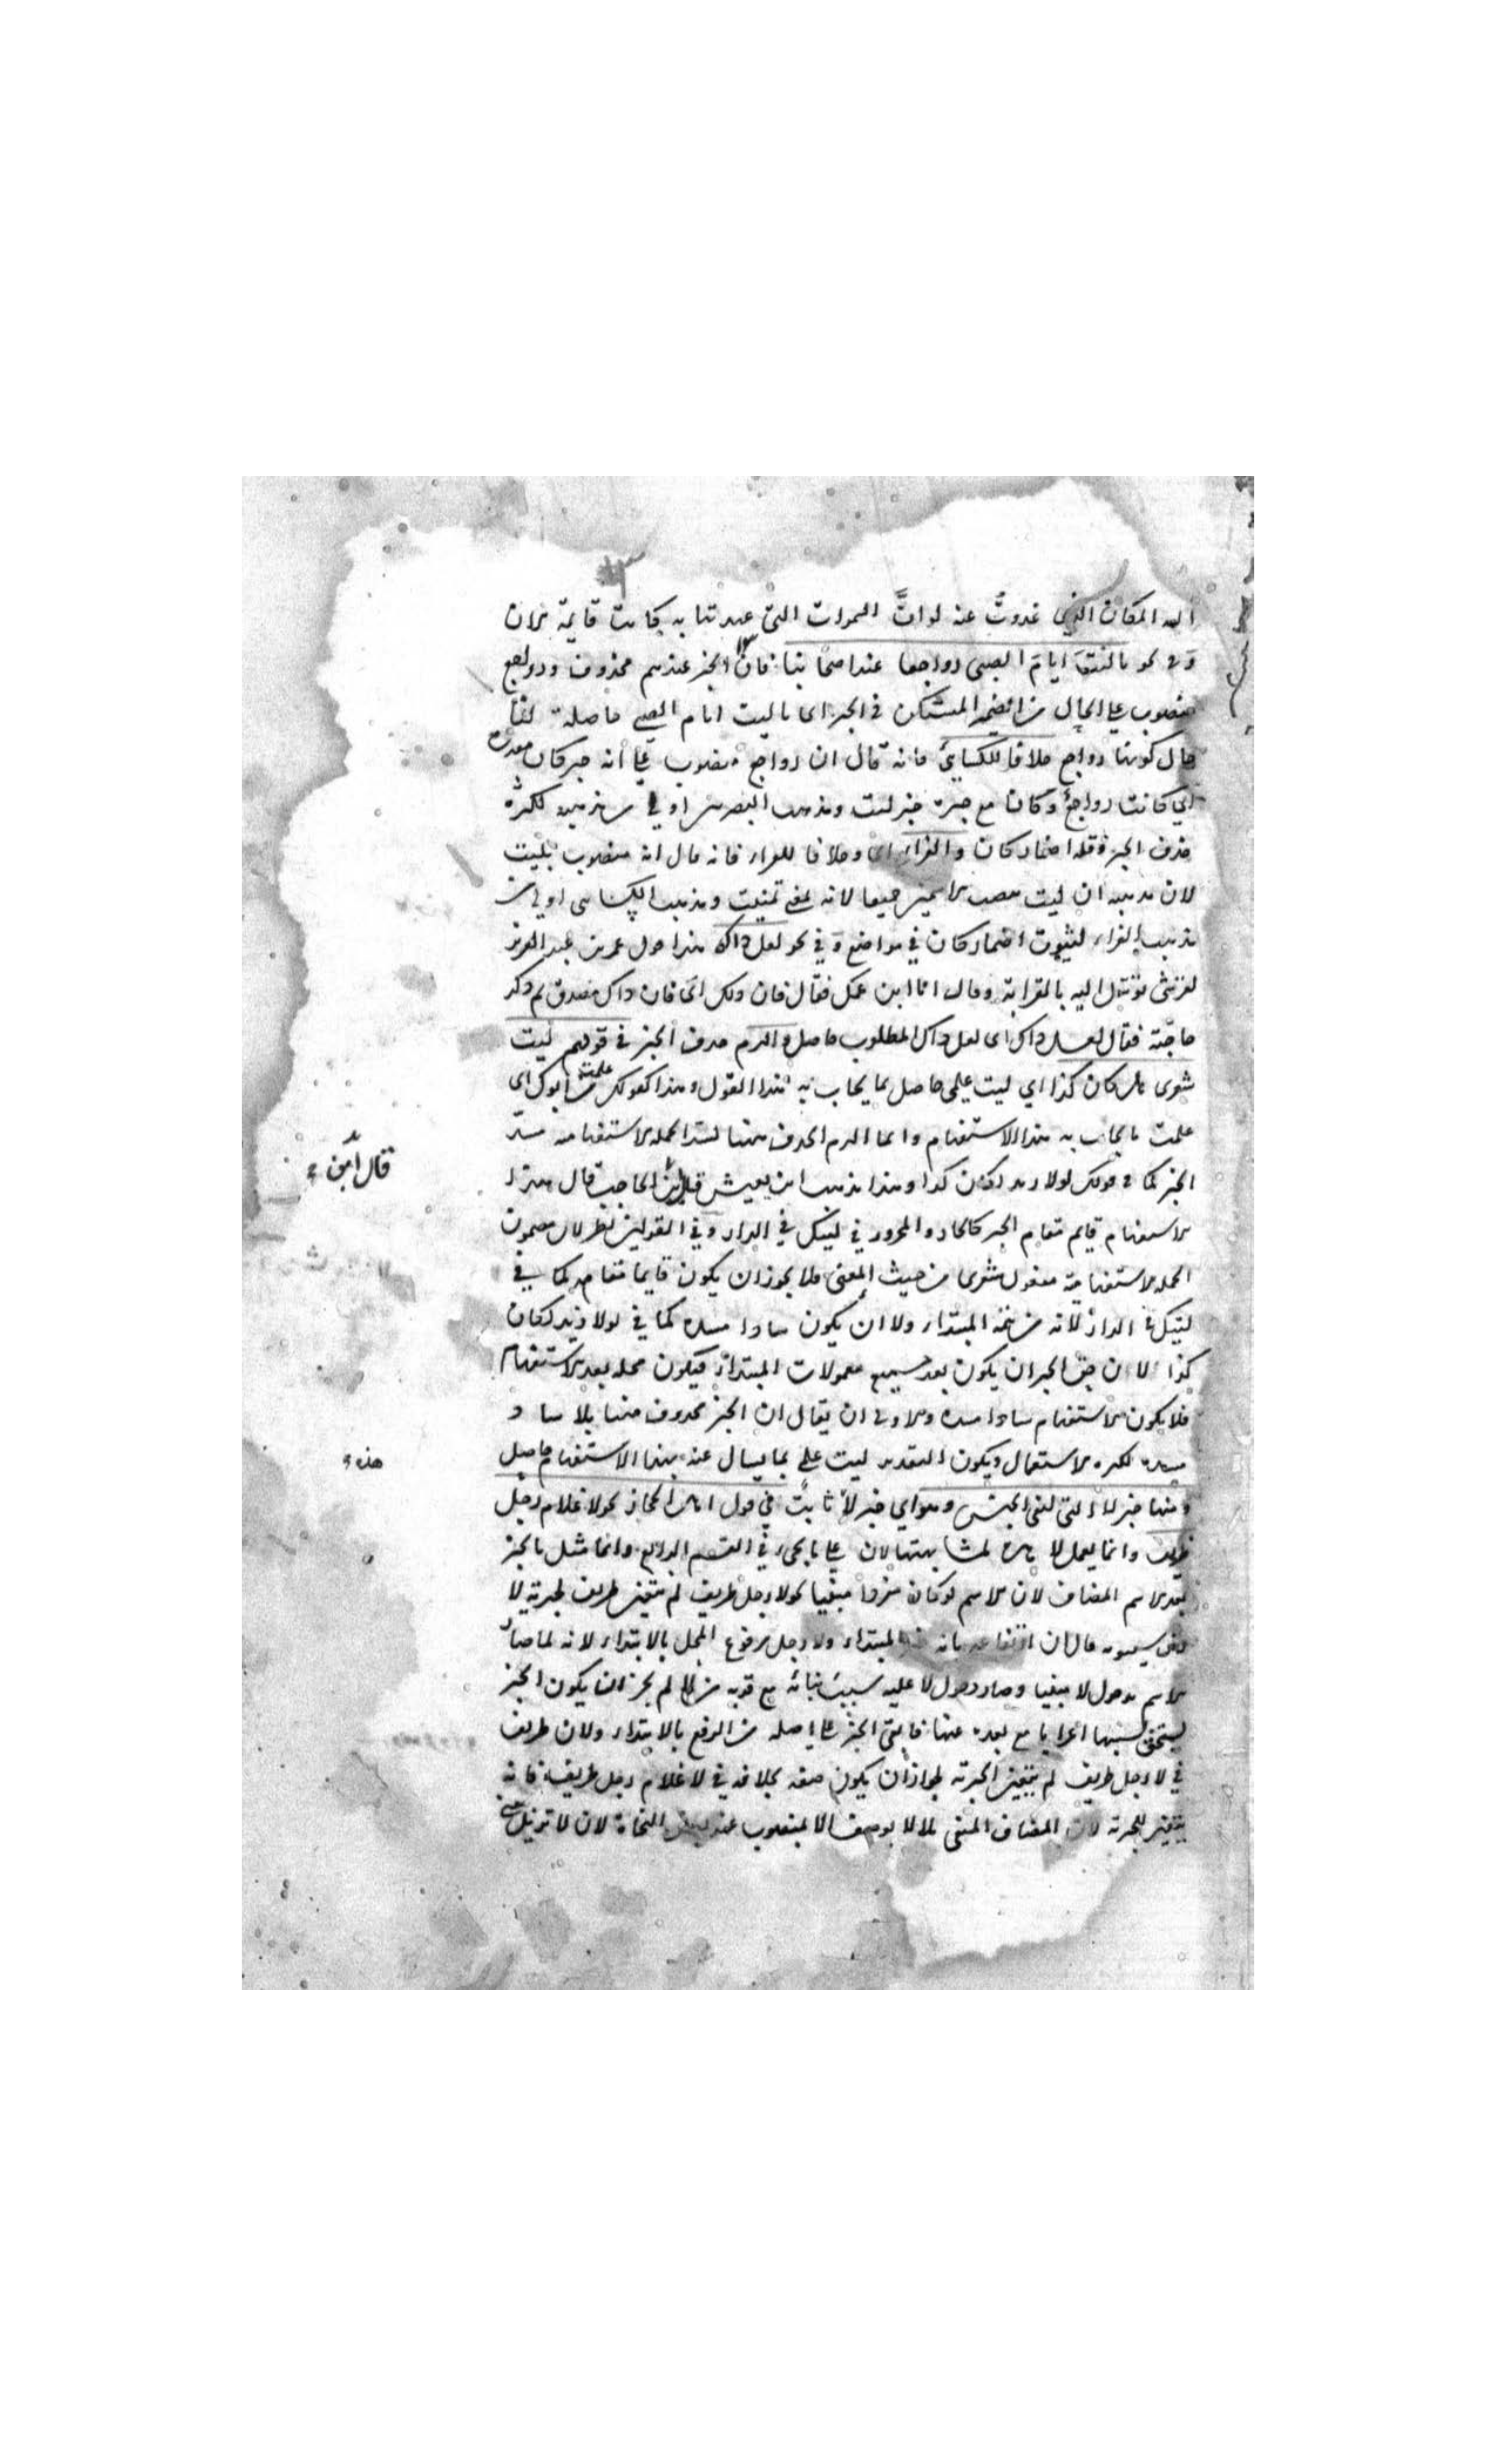 المكان الذي غدوت عنه لوات السموات التي عهدتها به كانت قايمة لان
و في نحو يا ليت ايام الصبى رواجعا عند اصحابنا فان الخبر عندهم محذوف ورواجع
منصوب على الحال من الضمير المستكن في الخبر اى يا ليت ايام الصبى حاصلة لنا
حال كونها رواجع خلافا للكسائي فانه قال ان رواجع منصوب على أنه خبر كان مقدرة
اي كانت رواجع وكان مع خبره خبر ليت ومذهب البصريين اولى من مذهبه لكثرة
حذف الخبر وقلة اضمار كان والفراء اى وخلافا للفراء فانه قال انه منصوب بليت
لان مذهبه ان ليت تنصب الاسمين جميعا لانه بمعنى تمنيت ومذهب الكسائي اولى من
مذهب الفراء لثبوت اضمار كان في مواضع وفي نحو لعل ذاك هذا قول عمر بن عبد العزيز
لقرشي توسل اليه بالقرابة وقال انا ابن عمك فقال فان ذلك اى فان ذاك مصدق ثم ذكر
حاجته فقال لعل ذاك اى لعل ذاك المطلوب حاصل والزم حذف الخبر في قولهم ليت
شعرى هل كان كذا اي ليت علمي حاصل بما يجاب به هذا القول وهذا كقولك علمت من ابوك اى
علمت ما يجاب به هذا الاستفهام وانما الزم الحذف ههنا لسد الجملة الاستفهامية مسد
الخبر كما في قولك لولا زيد لكان كذا وهذا مذهب ابن يعيش قال ابن الحاجب قال هذا
الاستفهام قايم مقام الخبر كالجار والمجرور في ليتك في الدار وفي القولين نظر لان مضمون
الجملة الاستفهامية مفعول شعرى من حيث المعنى فلا يجوز ان يكون قايما مقامه كما في
ليتك في الدار لانه من تتمة المبتداء ولا ان يكون سادا مسده كما في لولا زيد لكان
كذا لان حق الخبر ان يكون بعد جميع معمولات المبتداء فيكون محله بعد الاستفهام
فلا يكون الاستفهام سادا مسده والاولى ان يقال ان الخبر محذوف ههنا بلا ساد
مسده لكثرة الاستعمال ويكون التقدير ليت علمي بما يسال عنه بهذا الاستفهام حاصل
ومنها خبر لا التي لنفى الجنس وهو اي خبر لا ثابت في قول اهل الحجاز نحو لا غلام رجل
ظريف وانما يعمل لا هذه لمشابهتها لان على ما يجئ في القسم الرابع وانما مثل بالخبر
بعد الاسم المضاف لان الاسم لو كان مفردا مبنيا نحو لا رجل ظريف لم يتعين ظريف لخبرية لا
لان سيبويه قال ان ارتفاعه بانه خبر المبتداء ولا رجل مرفوع المحل بالابتداء لانه لما صار
الاسم بدخول لا مبنيا وصار دخول لا عليه سبب بنائه مع قربه من لا لم يجز ان يكون الخبر
يستحق بسببها اعرابا مع بعده عنها فابقى الخبر على اصله من الرفع بالابتداء ولان ظريف
في لا رجل ظريف لم يتعين للخبرية لجواز ان يكون صفة بخلافه في لا غلام رجل ظريف فانه
يتعين للخبرية لان المضاف المنفى بلا لا يوصف الا بمنصوب عند بعض النحاة لان لا تزيل
قال ابن
هذه